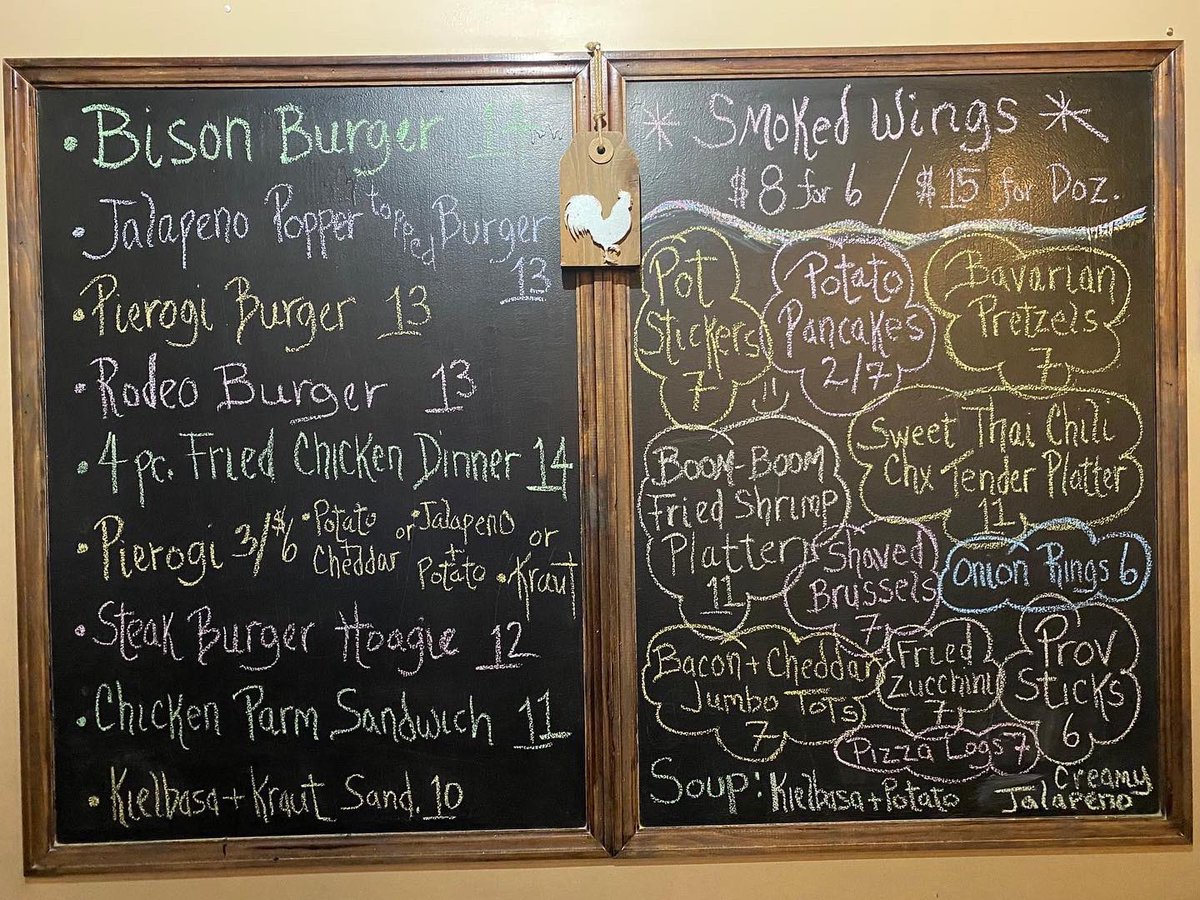 • Bison Burger 14
• Jalapeno Popper topped Burger
13
• Pierogi Burger 13
• Rodeo Burger 13
• 4 pc. Fried Chicken Dinner 14
• Pierogi 3/$6 • Potato Cheddar or • Jalapeno + Potato or • Kraut
• Steak Burger Hoagie 12
• Chicken Parm Sandwich 11
• Kielbasa + Kraut Sand. 10
* Smoked Wings *
$8 for 6 / $15 for Doz.
Pot
Stickers
7
Potato
Pancakes
2/7
Bavarian
Pretzels
7
Sweet Thai Chili
Chx Tender Platter
11
Boom-Boom
Fried Shrimp
Platter
11
Shaved
Brussels
7
Onion Rings 6
Bacon + Cheddar
Jumbo Tots
7
Fried
Zucchini
7
Prov
Sticks
6
Pizza Logs 7
Soup: Kielbasa + Potato
Creamy
Jalapeño